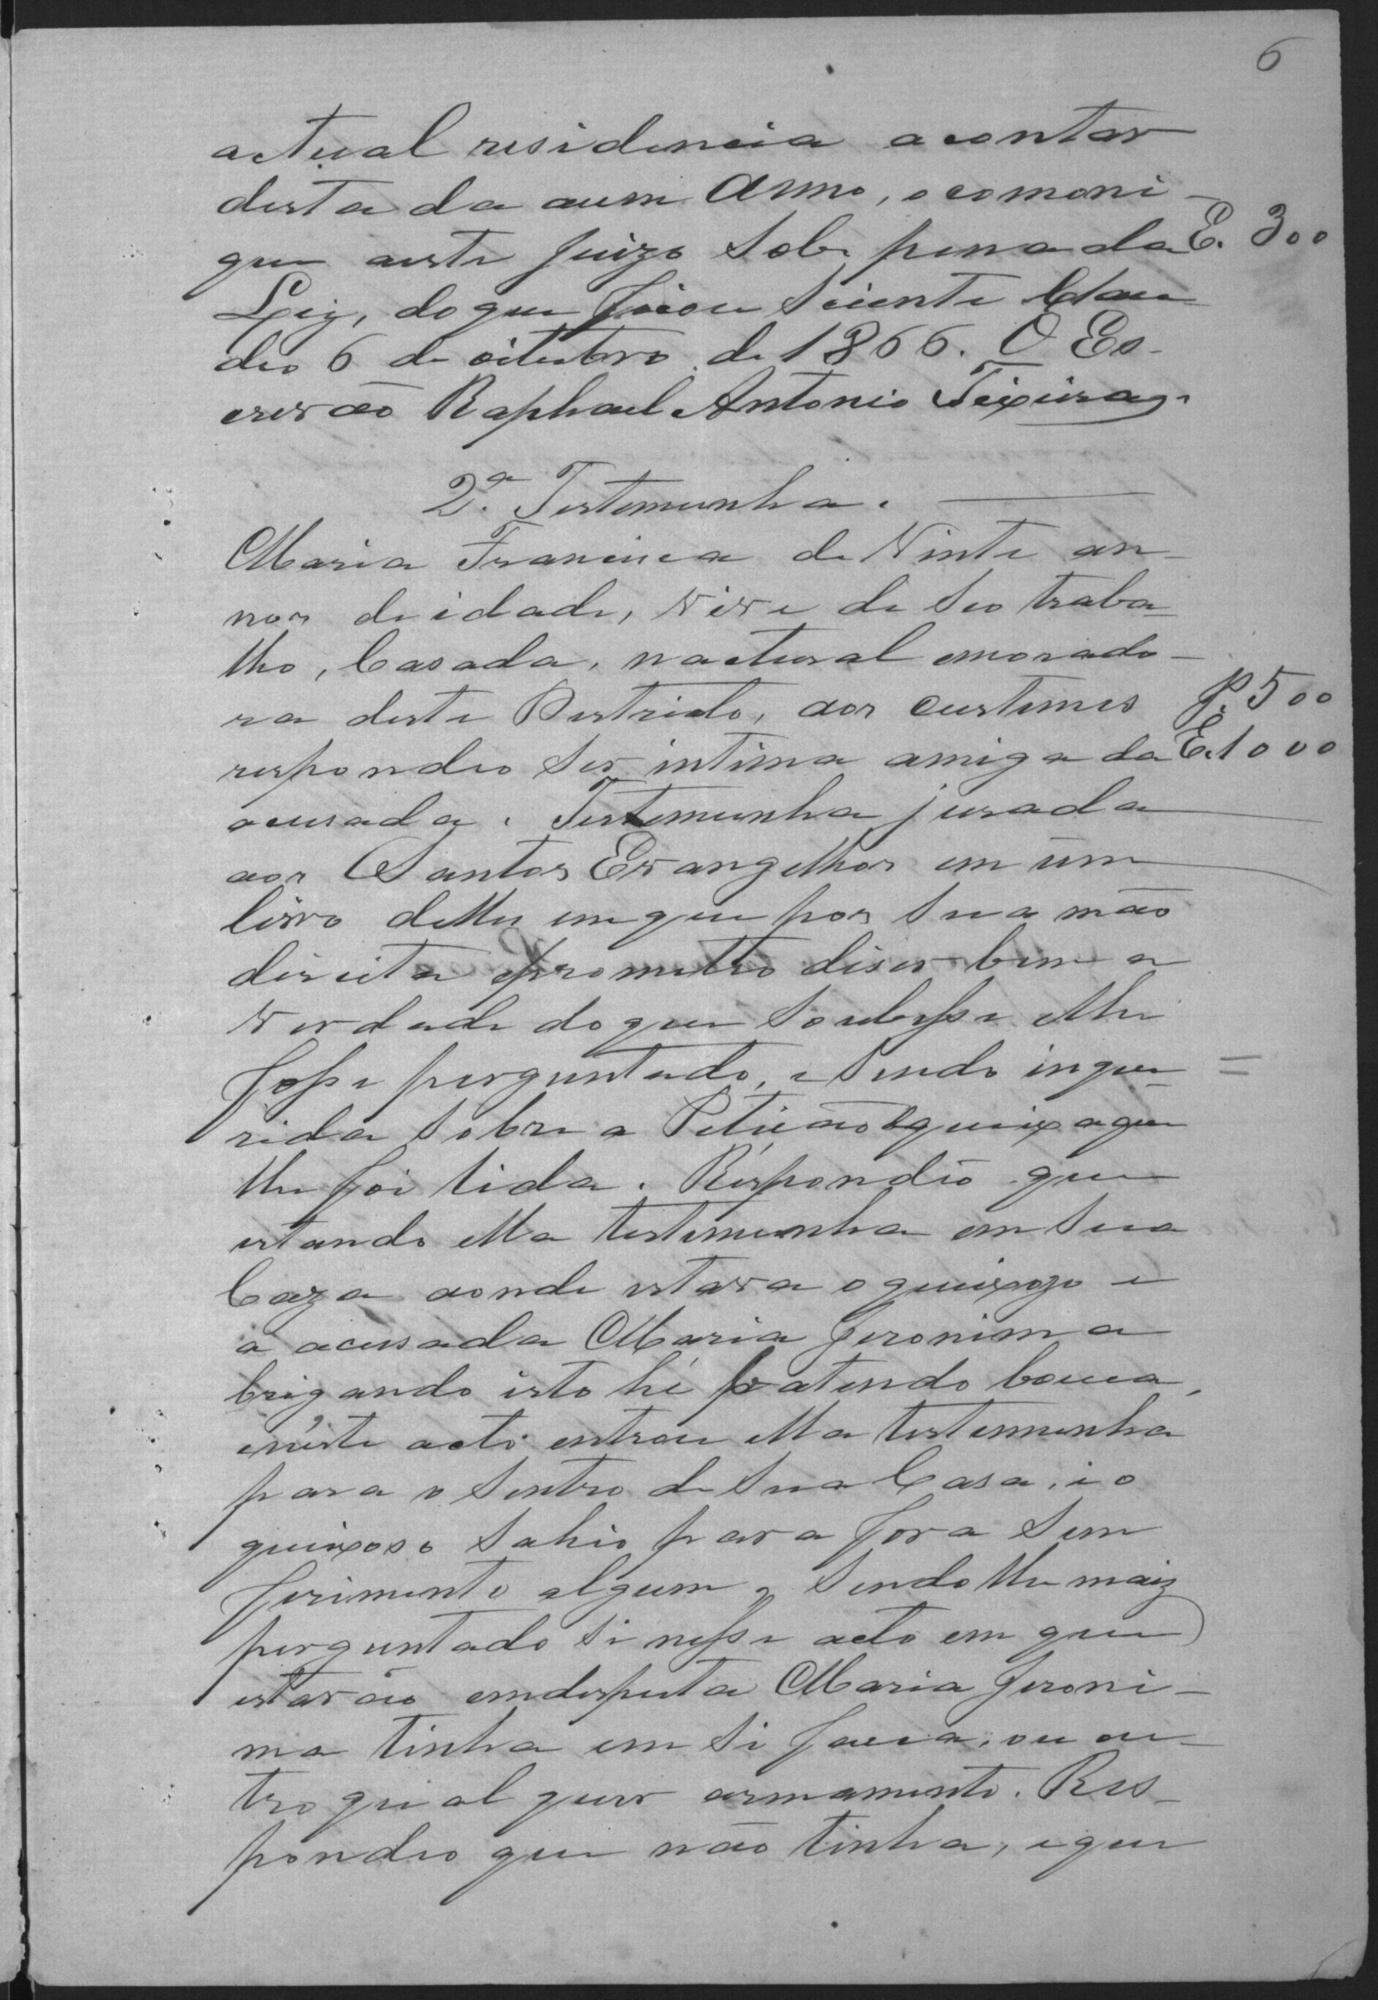 6
actual residencia acontar
desta da aum Anno, ocomoni-
que aeste Juizo Sob pena da E. 300
Ley, doque ficou Sciente e dou
fé 6 de oitubro de 1866. O Es-
crivão Raphael Antonio Teixeira
2ª Testemunha.
Maria Francisca de Vinte an-
nos de idade, vive de Seo traba-
lho, Casada, nactural emorado-
ra deste Destricto, aos custumes P. 500
respondeo Ser intima amiga da E. 1000
acusada. Testemunha jurada
aos Santos Evangelhos em um
livro delles em que pos Sua mão
direita eprometeo diser bem a
verdade doque Soubesse elhe
fosse perguntado, eSendo inque-
rida Sobre a Petição equeixa que
lhe foi lida. Respondeo que
estando ella testemunha em Sua
Caza aonde estava oqueixozo e
a acusada Maria Jeronima
brigando isto hé batendo bocca,
eneste acto entrou ella testemunha
para o Sentro de Sua Casa, e o
queixoso Sahio para fora Sem
ferimento algum, Sendolhe maiz
perguntado Si nesse acto em que
estavão emdesputa Maria Jeroni-
ma tinha em Si faca, ou ou-
tro qualquer armamento. Res-
pondeo que não tinha, eque